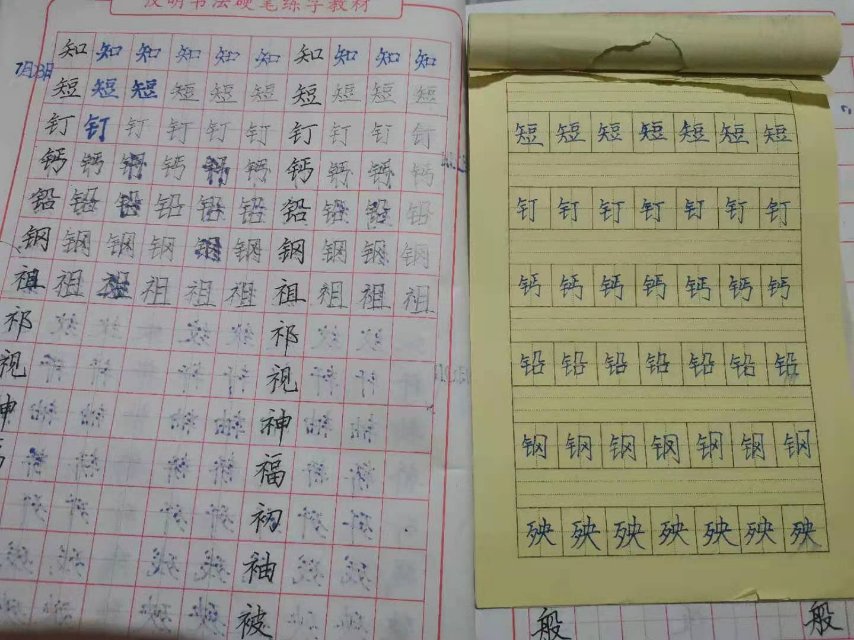 汉明书法硬笔练字教材
知知知知知知知知知知
短短短短短短短短短短
钉钉钉钉钉钉钉钉钉钉
钙钙钙钙钙钙钙钙钙钙
铅铅铅铅铅铅铅铅铅铅
钢钢钢钢钢钢钢钢钢钢
祖祖祖祖祖祖祖祖祖祖
祁祁
视视
神神
福
初
袖
被
短短短短短短短
钉钉钉钉钉钉钉
钙钙钙钙钙钙钙
铅铅铅铅铅铅铅
钢钢钢钢钢钢钢
殃殃殃殃殃殃殃
般般